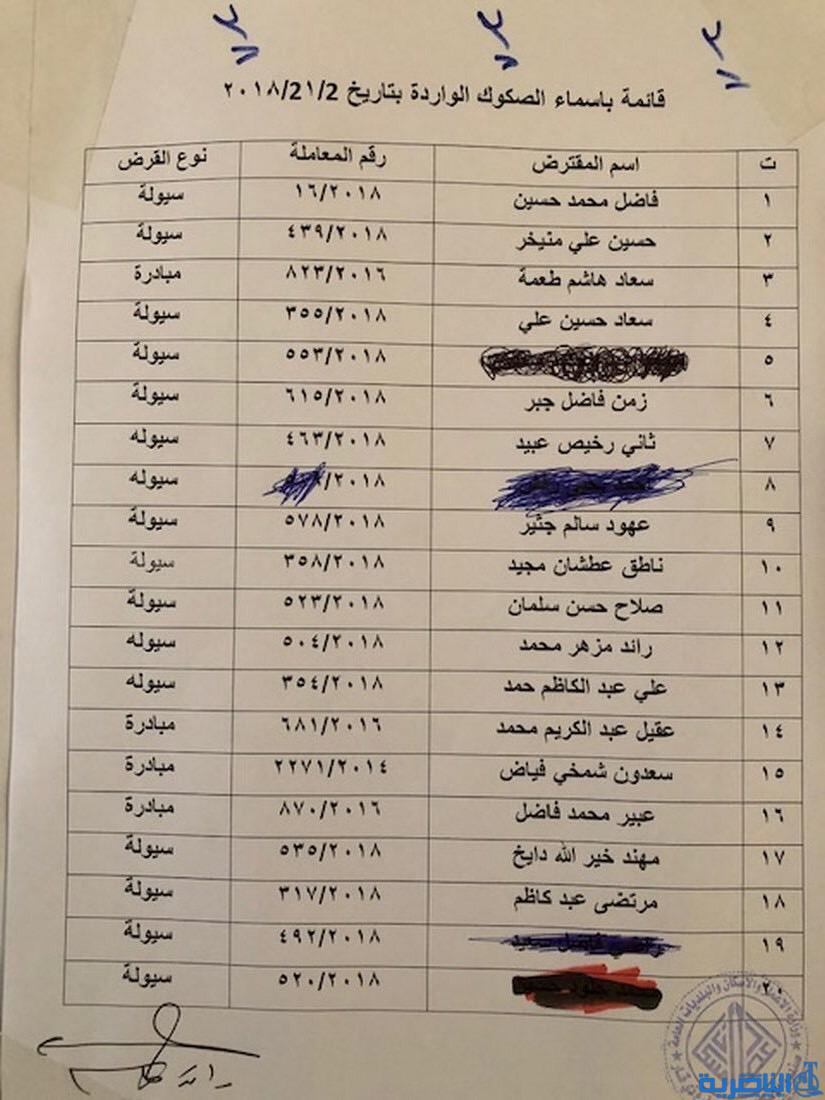 قائمة باسماء الصكوك الواردة بتاريخ 2/21/٢٠١٨
ت اسم المقترض رقم المعاملة نوع القرض
١ فاضل محمد حسين ١٦/٢٠١٨ سيولة
٢ حسين علي منيخر ٤٣٩/٢٠١٨ سيولة
٣ سعاد هاشم طعمة ٨٢٣/٢٠١٦ مبادرة
٤ سعاد حسين علي ٣٥٥/٢٠١٨ سيولة
٥ ٥٥٣/٢٠١٨ سيولة
٦ زمن فاضل جبر ٦١٥/٢٠١٨ سيولة
٧ ثاني رخيص عبيد ٤٦٣/٢٠١٨ سيوله
٨ /٢٠١٨ سيوله
٩ عهود سالم جثير ٥٧٨/٢٠١٨ سيولة
١٠ ناطق عطشان مجيد ٣٥٨/٢٠١٨ سيولة
١١ صلاح حسن سلمان ٥٢٣/٢٠١٨ سيولة
١٢ رائد مزهر محمد ٥٠٤/٢٠١٨ سيوله
١٣ علي عبد الكاظم حمد ٣٥٤/٢٠١٨ سيوله
١٤ عقيل عبد الكريم محمد ٦٨١/٢٠١٦ مبادرة
١٥ سعدون شمخي فياض ٢٢٧١/٢٠١٤ مبادرة
١٦ عبير محمد فاضل ٨٧٠/٢٠١٦ مبادرة
١٧ مهند خير الله دايخ ٥٣٥/٢٠١٨ سيولة
١٨ مرتضى عبد كاظم ٣١٧/٢٠١٨ سيولة
١٩ ٤٩٢/٢٠١٨ سيولة
٢٠ ٥٢٠/٢٠١٨ سيولة
الناصرية